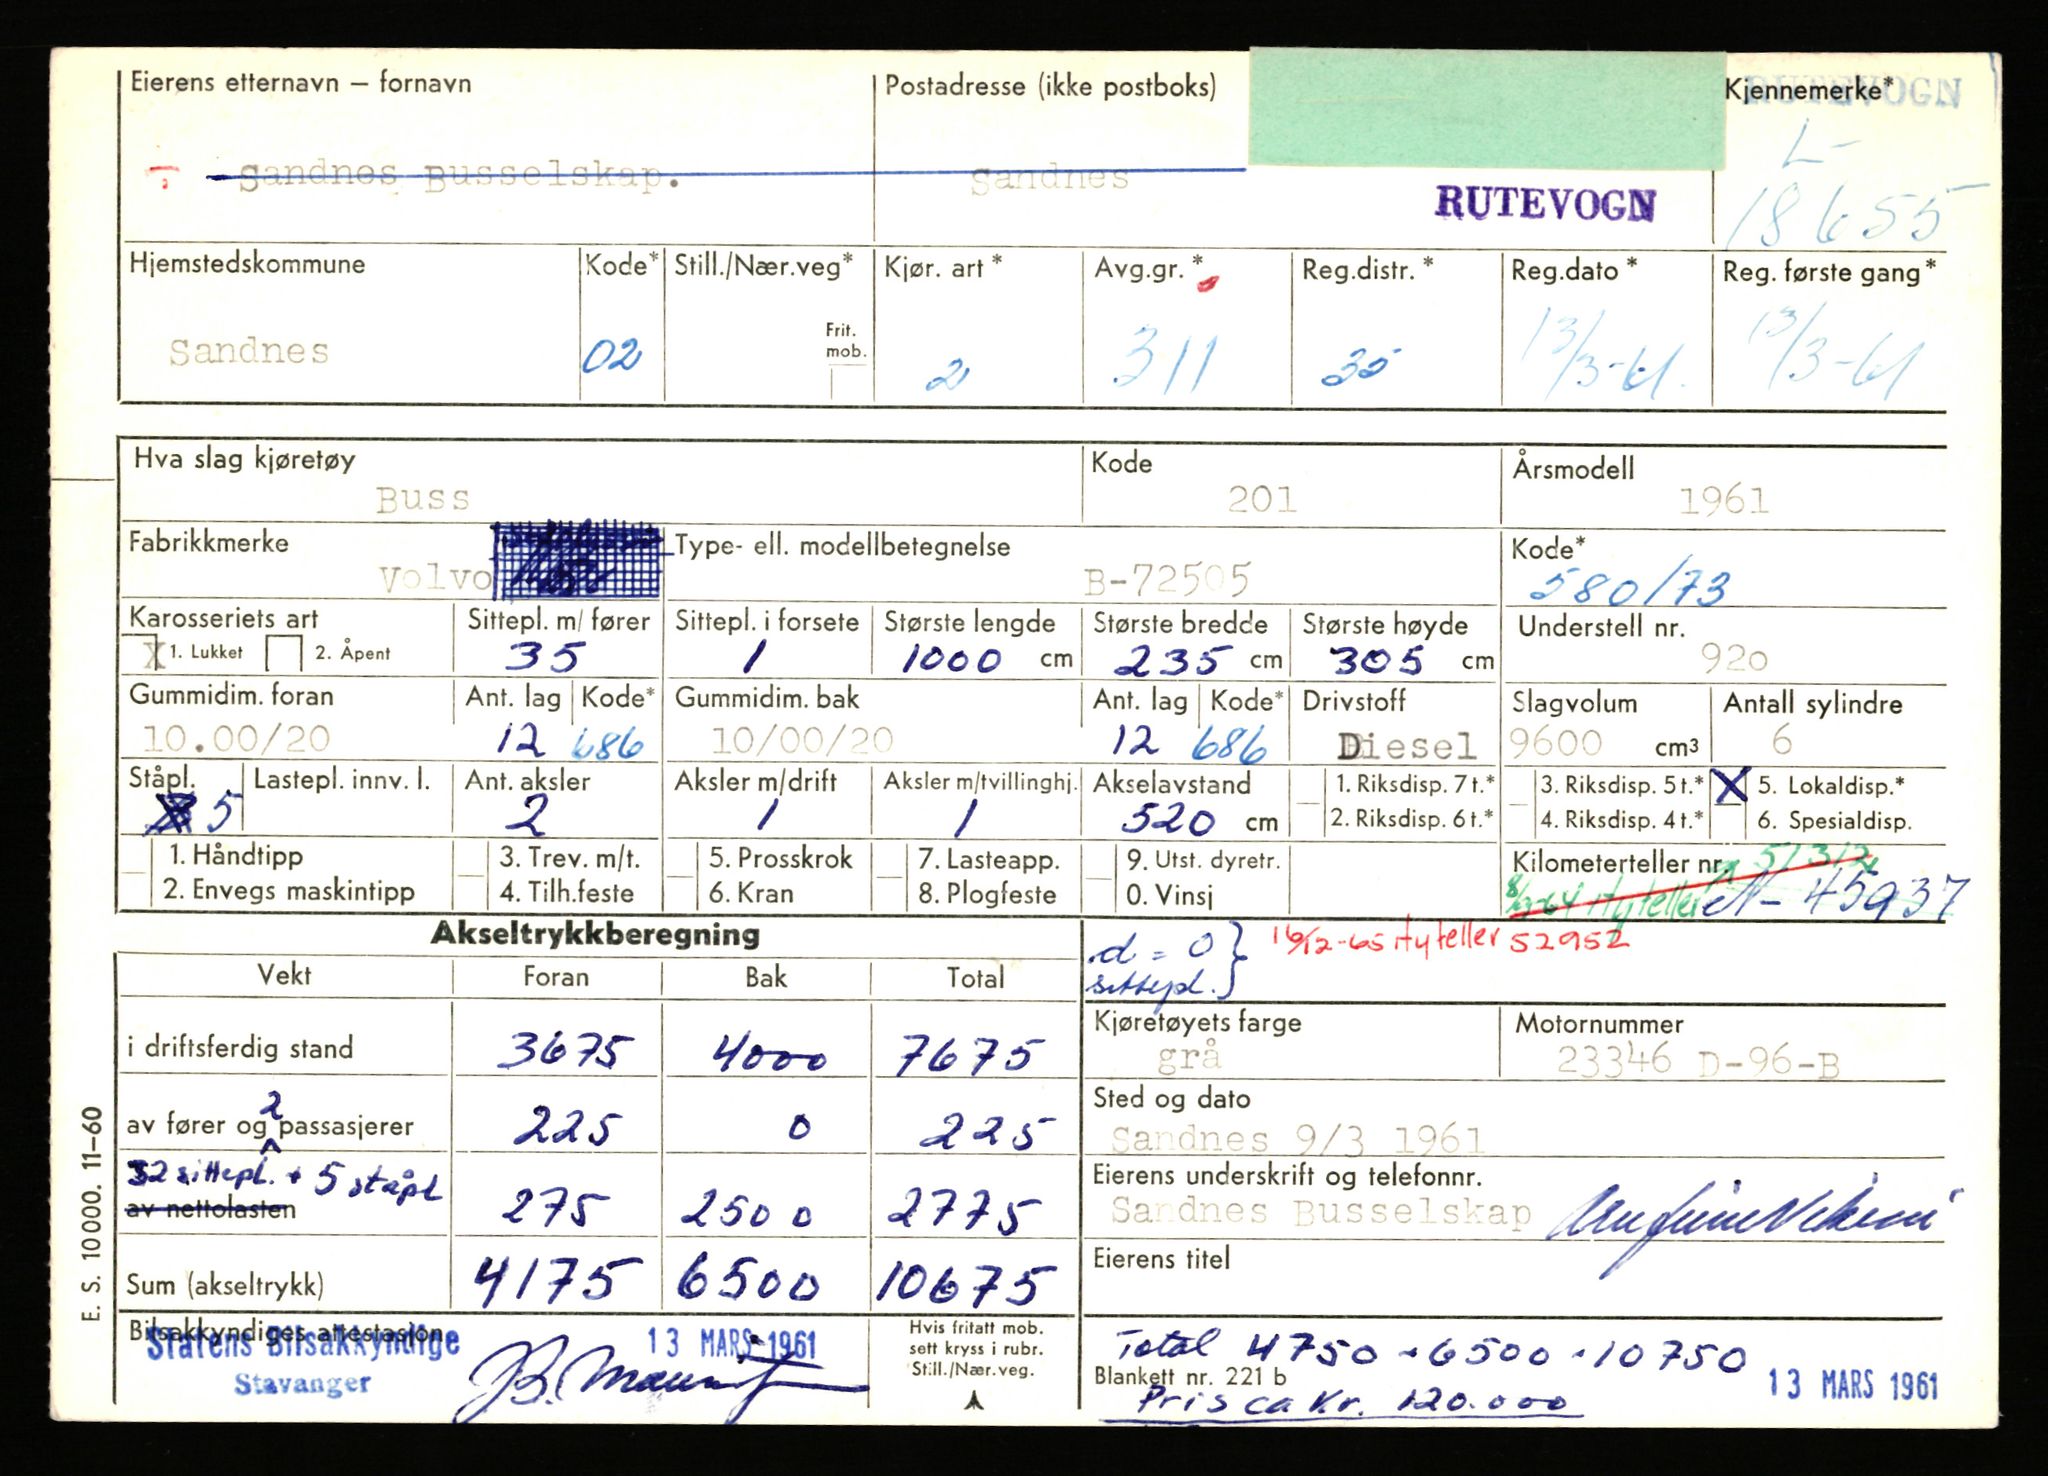 Eierens etternavn – fornavn
Postadresse (ikke postboks)
Kjennemerke*
RUTEVOGN
Sandnes Busselskap.
Sandnes
RUTEVOGN
L-
18655
Hjemstedskommune
Kode*
Still./Nær.veg*
Kjør. art *
Avg.gr.*
Reg.distr. *
Reg.dato *
Reg. første gang*
Sandnes
02
Frit.
mob.
2
311
35
13/3-61.
13/3-61
Hva slag kjøretøy
Kode
Årsmodell
Buss
201
1961
Fabrikkmerke
Type- ell. modellbetegnelse
Kode*
Volvo
B-72505
580/73
Karosseriets art
Sittepl. m/ fører
Sittepl. i forsete
Største lengde
Største bredde
Største høyde
Understell nr.
X 1. Lukket 2. Åpent
35
1
1000 cm
235 cm
305 cm
920
Gummidim. foran
Ant. lag
Kode*
Gummidim. bak
Ant. lag
Kode*
Drivstoff
Slagvolum
Antall sylindre
10.00/20
12
686
10/00/20
12
686
Diesel
9600 cm³
6
Ståpl.
Lastepl. innv. l.
Ant. aksler
Aksler m/drift
Aksler m/tvillinghj.
Akselavstand
1. Riksdisp. 7 t.*
3. Riksdisp. 5 t.*
X 5. Lokaldisp.*
5
2
1
1
520 cm
2. Riksdisp. 6 t.*
4. Riksdisp. 4 t.*
6. Spesialdisp.
1. Håndtipp
3. Trev. m/t.
5. Prosskrok
7. Lasteapp.
9. Utst. dyretr.
Kilometerteller nr.
51312
2. Envegs maskintipp
4. Tilh.feste
6. Kran
8. Plogfeste
0. Vinsj
Ny teller
N-45937
Akseltrykkberegning
d = 0
sittepl. }
16/12-65 Ny teller 52952
Vekt
Foran
Bak
Total
Kjøretøyets farge
Motornummer
i driftsferdig stand
3675
4000
7675
grå
23346 D-96-B
2
Sted og dato
av fører og passasjerer
225
0
225
Sandnes 9/3 1961
32 sittepl. + 5 ståpl
Eierens underskrift og telefonnr.
av nettolasten
275
2500
2775
Sandnes Busselskap
Eierens titel
Sum (akseltrykk)
4175
6500
10675
Bilsakkyndiges attestasjon
Statens Bilsakkyndige
Stavanger
13 MARS 1961
Hvis fritatt mob.
sett kryss i rubr.
Still./Nær.veg.
Total 4750 - 6500 - 10750
Blankett nr. 221 b
Pris ca Kr. 120.000
13 MARS 1961
E. S. 10000. 11–60